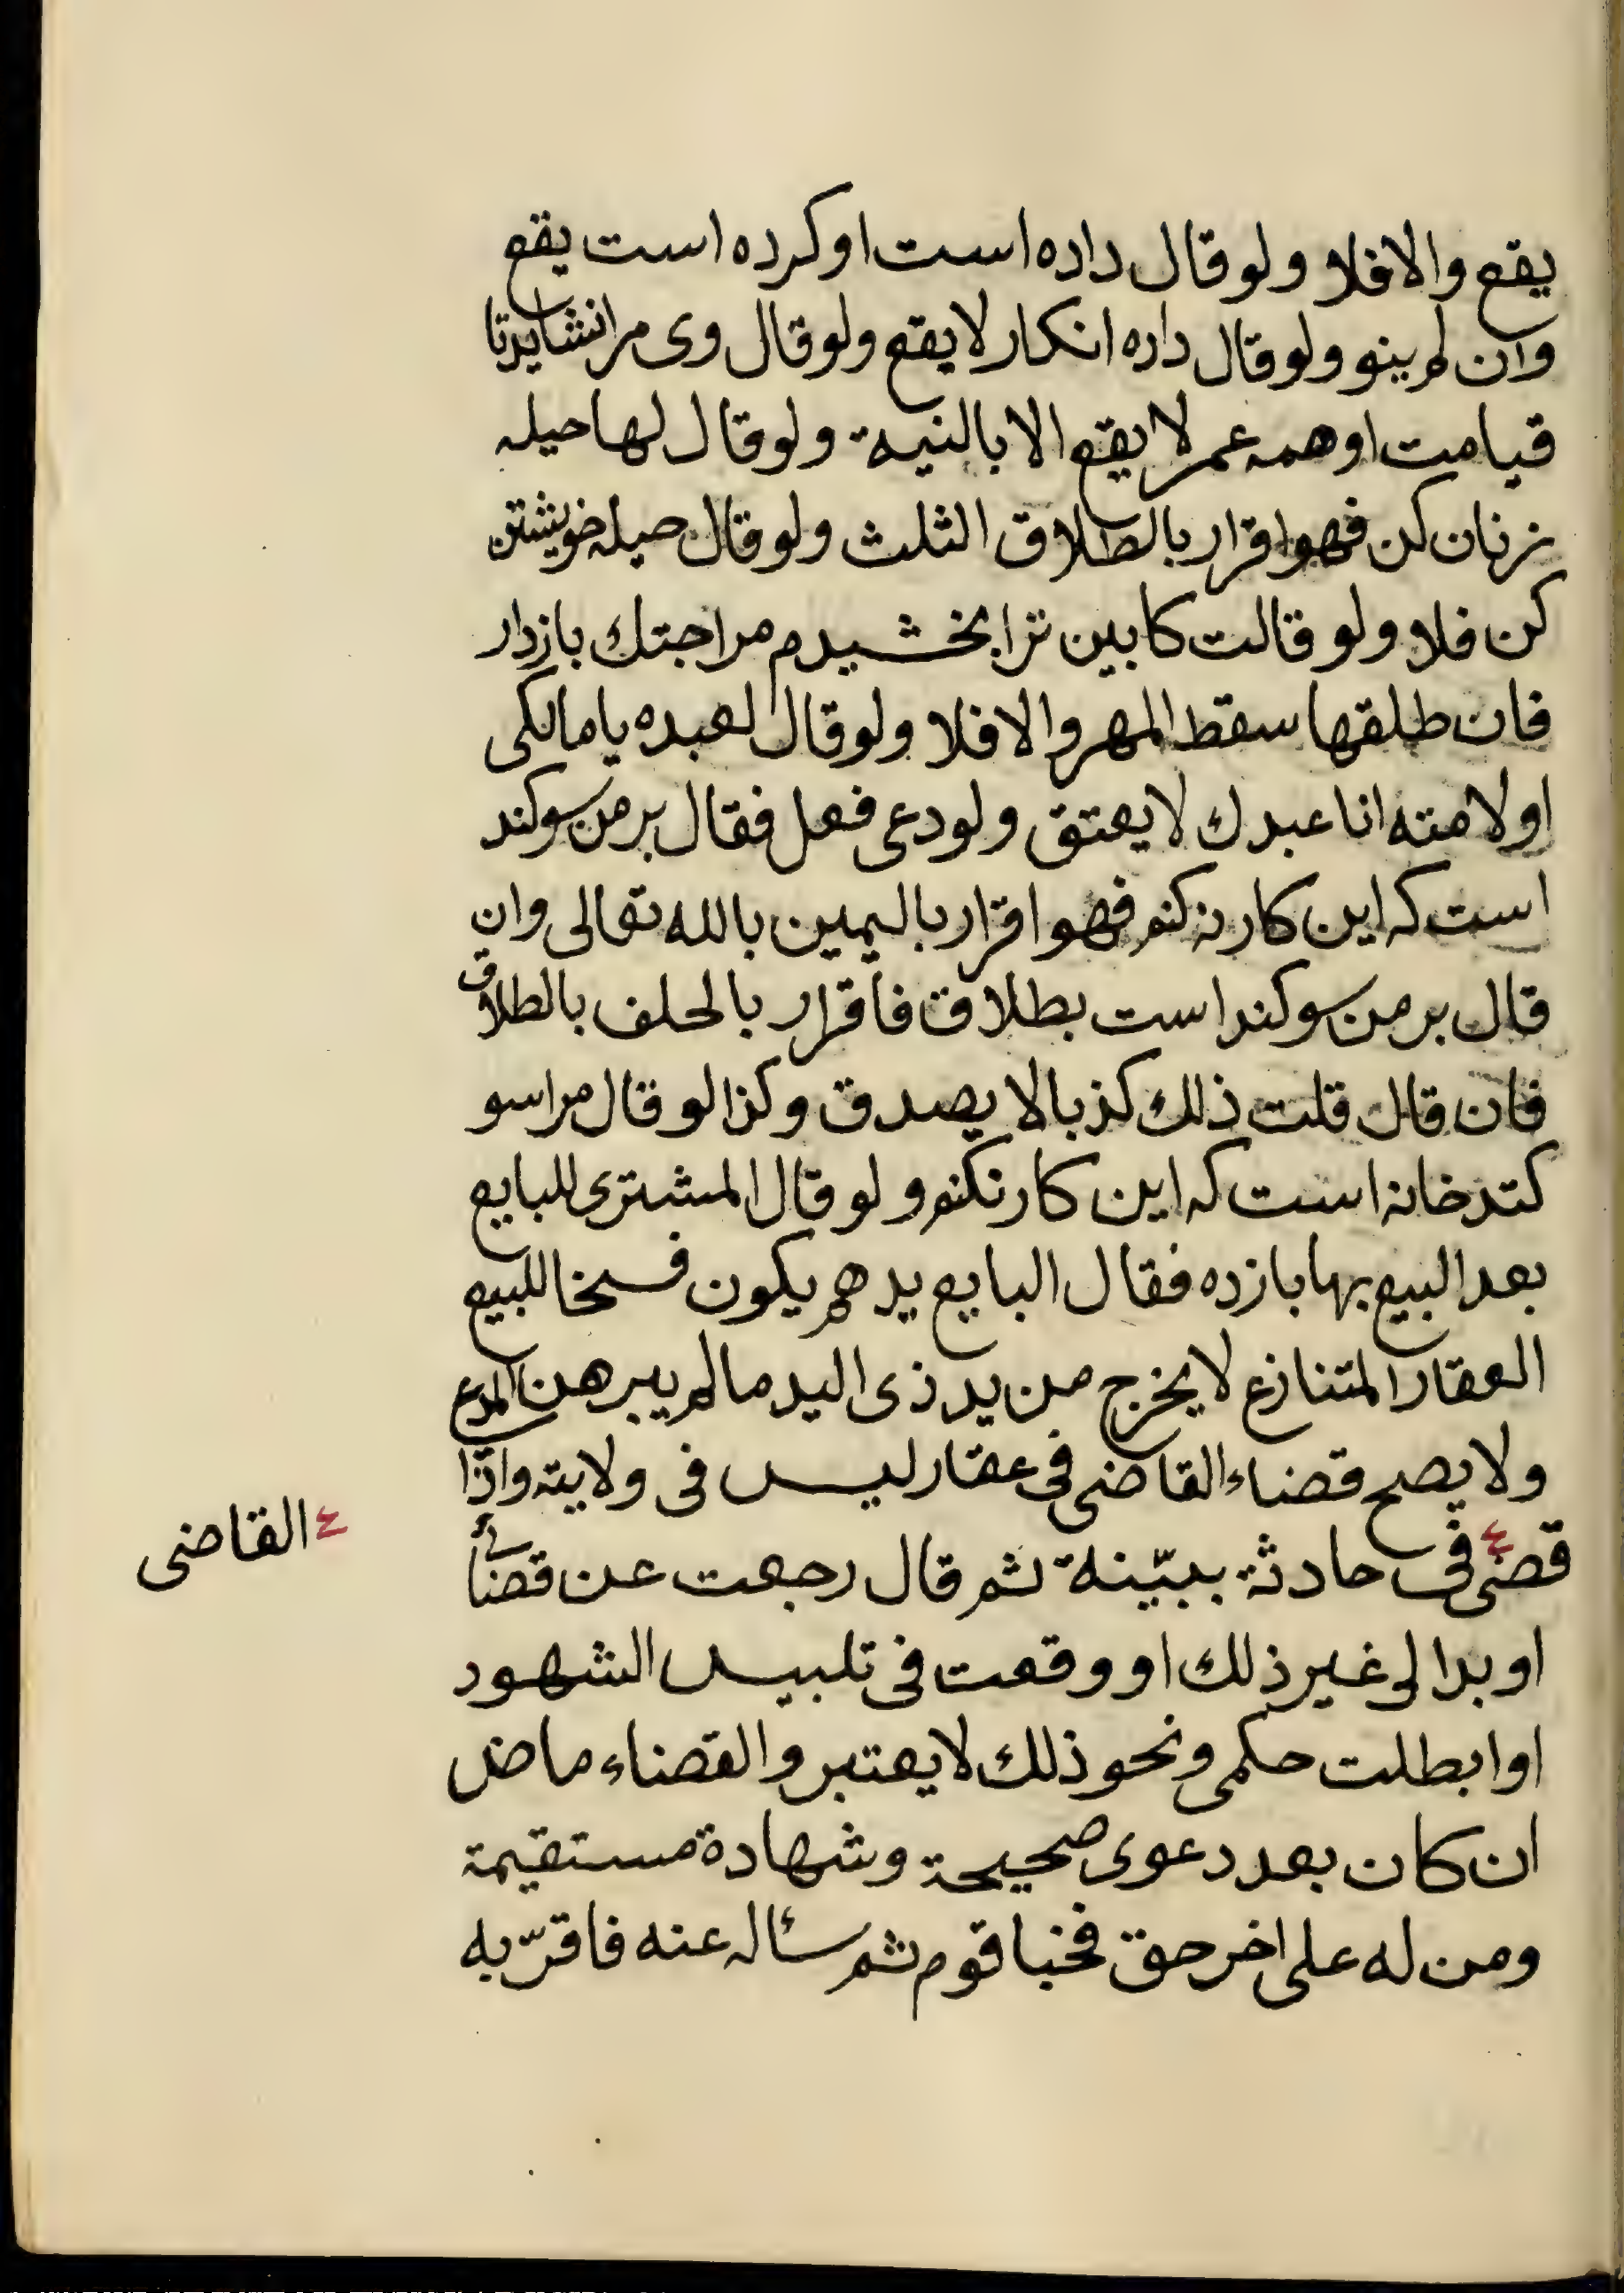 يقع والا فلا ولو قال داده است او كرده است يقع
وان لم ينو ولو قال داده انكار لا يقع ولو قال وى مرا نشايد تا
قيامت او همه عمر لا يقع الا بالنية ولو قال لها حيله
زنان كن فهو اقرار بالطلاق الثلث ولو قال حيله خويشتن
كن فلا ولو قالت كابين ترا بخشيدم مرا جتك بازدار
فان طلقها سقط المهر والا فلا ولو قال لعبده يا مالكى
او لامته انا عبدك لا يعتق ولو دعى فعل فقال بر من سوكند
است كه اين كار نه كنم فهو اقرار باليمين بالله تعالى وان
قال بر من سوكند است بطلاق فاقرار بالحلف بالطلاق
فان قال قلت ذلك كذبا لا يصدق وكذا لو قال مرا سو
كند خانه است كه اين كار نكنم ولو قال المشترى للبايع
بعد البيع بها باز ده فقال البايع يدهم يكون فسخا للبيع
العقار المتنازع لا يخرج من يد ذى اليد ما لم يبرهن المدع
ولا يصح قضاء القاضى فى عقار ليس فى ولايته واذا
قضى ع فى حادثة ببيّنة ثم قال رجعت عن قضائى
ع القاضى
او بدا لى غير ذلك او وقعت فى تلبيس الشهود
او ابطلت حكمى ونحو ذلك لا يعتبر والقضاء ماض
ان كان بعد دعوى صحيحة وشهادة مستقيمة
ومن له على اخر حق فخبا قوم ثم سئاله عنه فاقرّ به